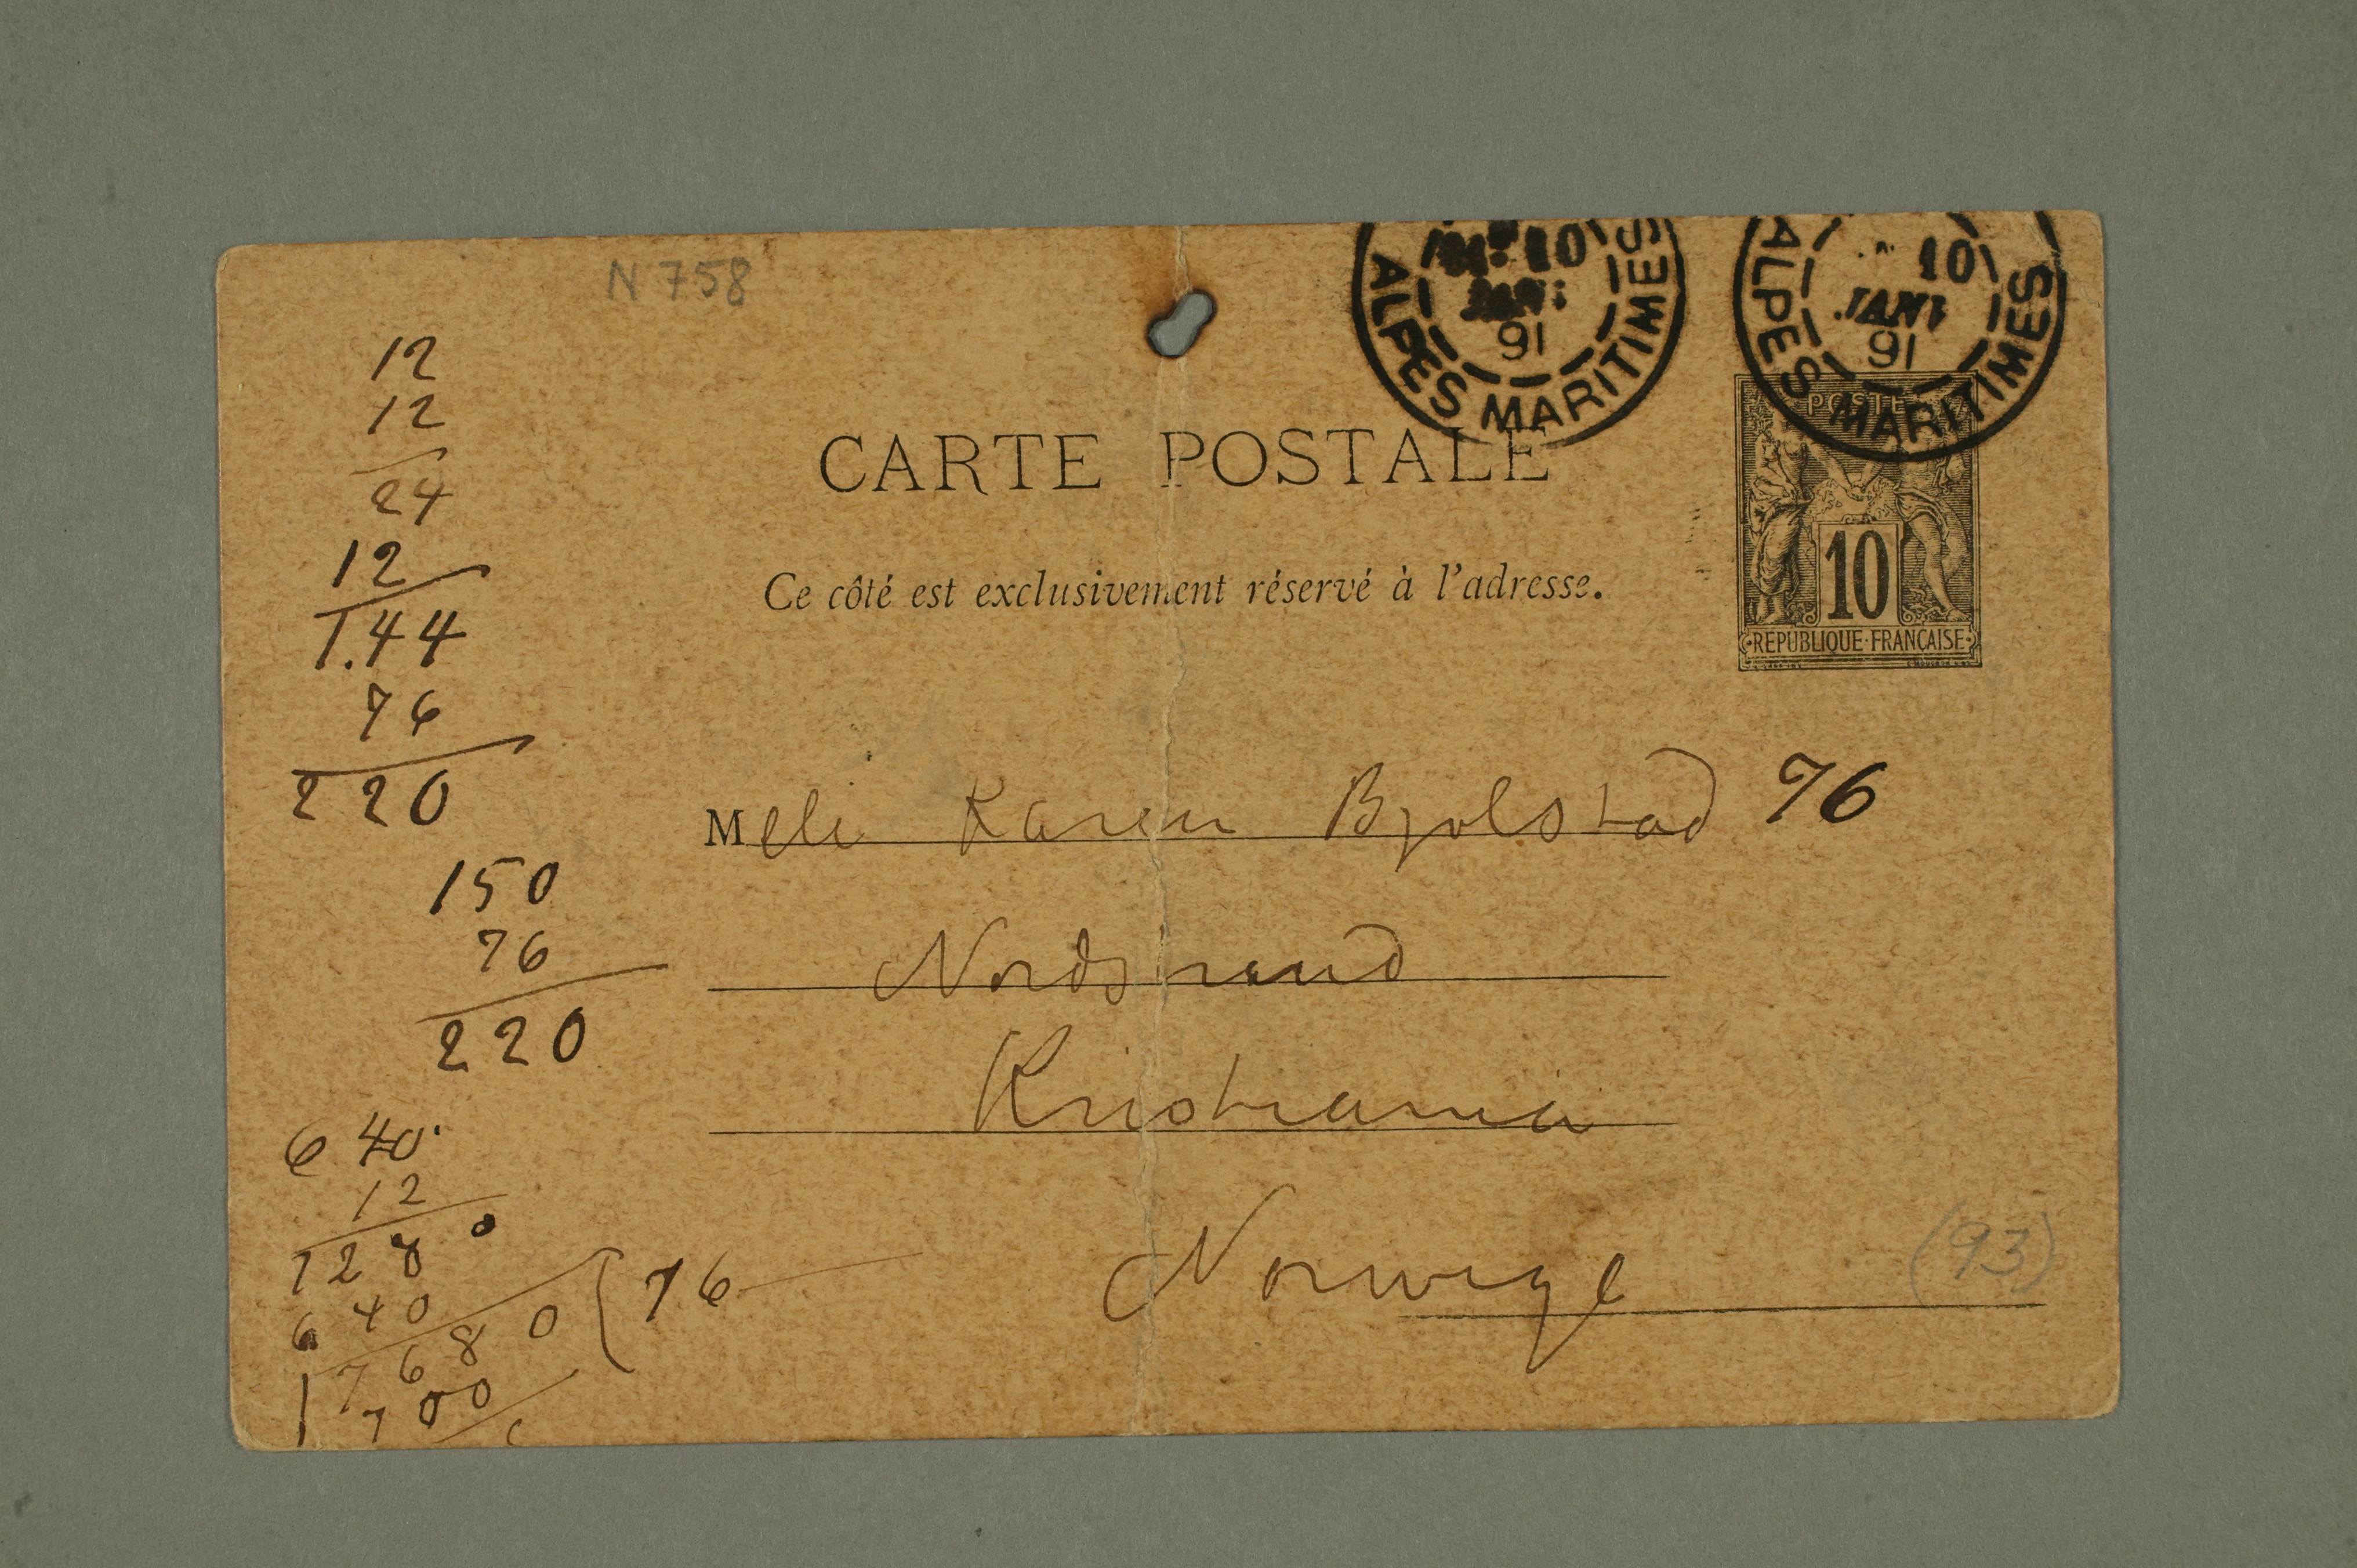 N 758
10
JANV
91
ALPES MARITIMES
10
JANV
91
ALPES MARITIMES
POSTE
10
REPUBLIQUE FRANÇAISE
CARTE POSTALE
Ce côté est exclusivement réservé à l'adresse.
Melle Karen Bjølstad 76
Nordstrand
Kristiania
Norwege
(93)
12
12
24
12
1.44
76
220
150
76
220
640
12
1280
640
7680 76
1700